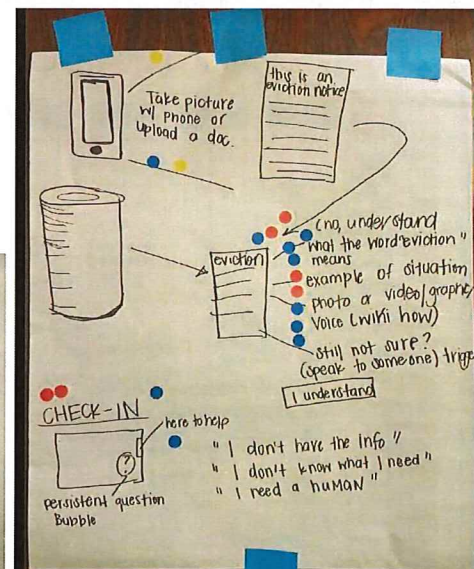 Take picture
w/ phone or
upload a doc.
this is an
eviction notice
eviction
(no, understand
what the word "eviction"
means
example of situation
photo or video/graphic
Voice (wiki how)
still not sure?
(speak to someone)
I understand
CHECK-IN
here to help
?
persistent question
Bubble
" I don't have the info "
" I don't know what I need "
" I need a huMAN "